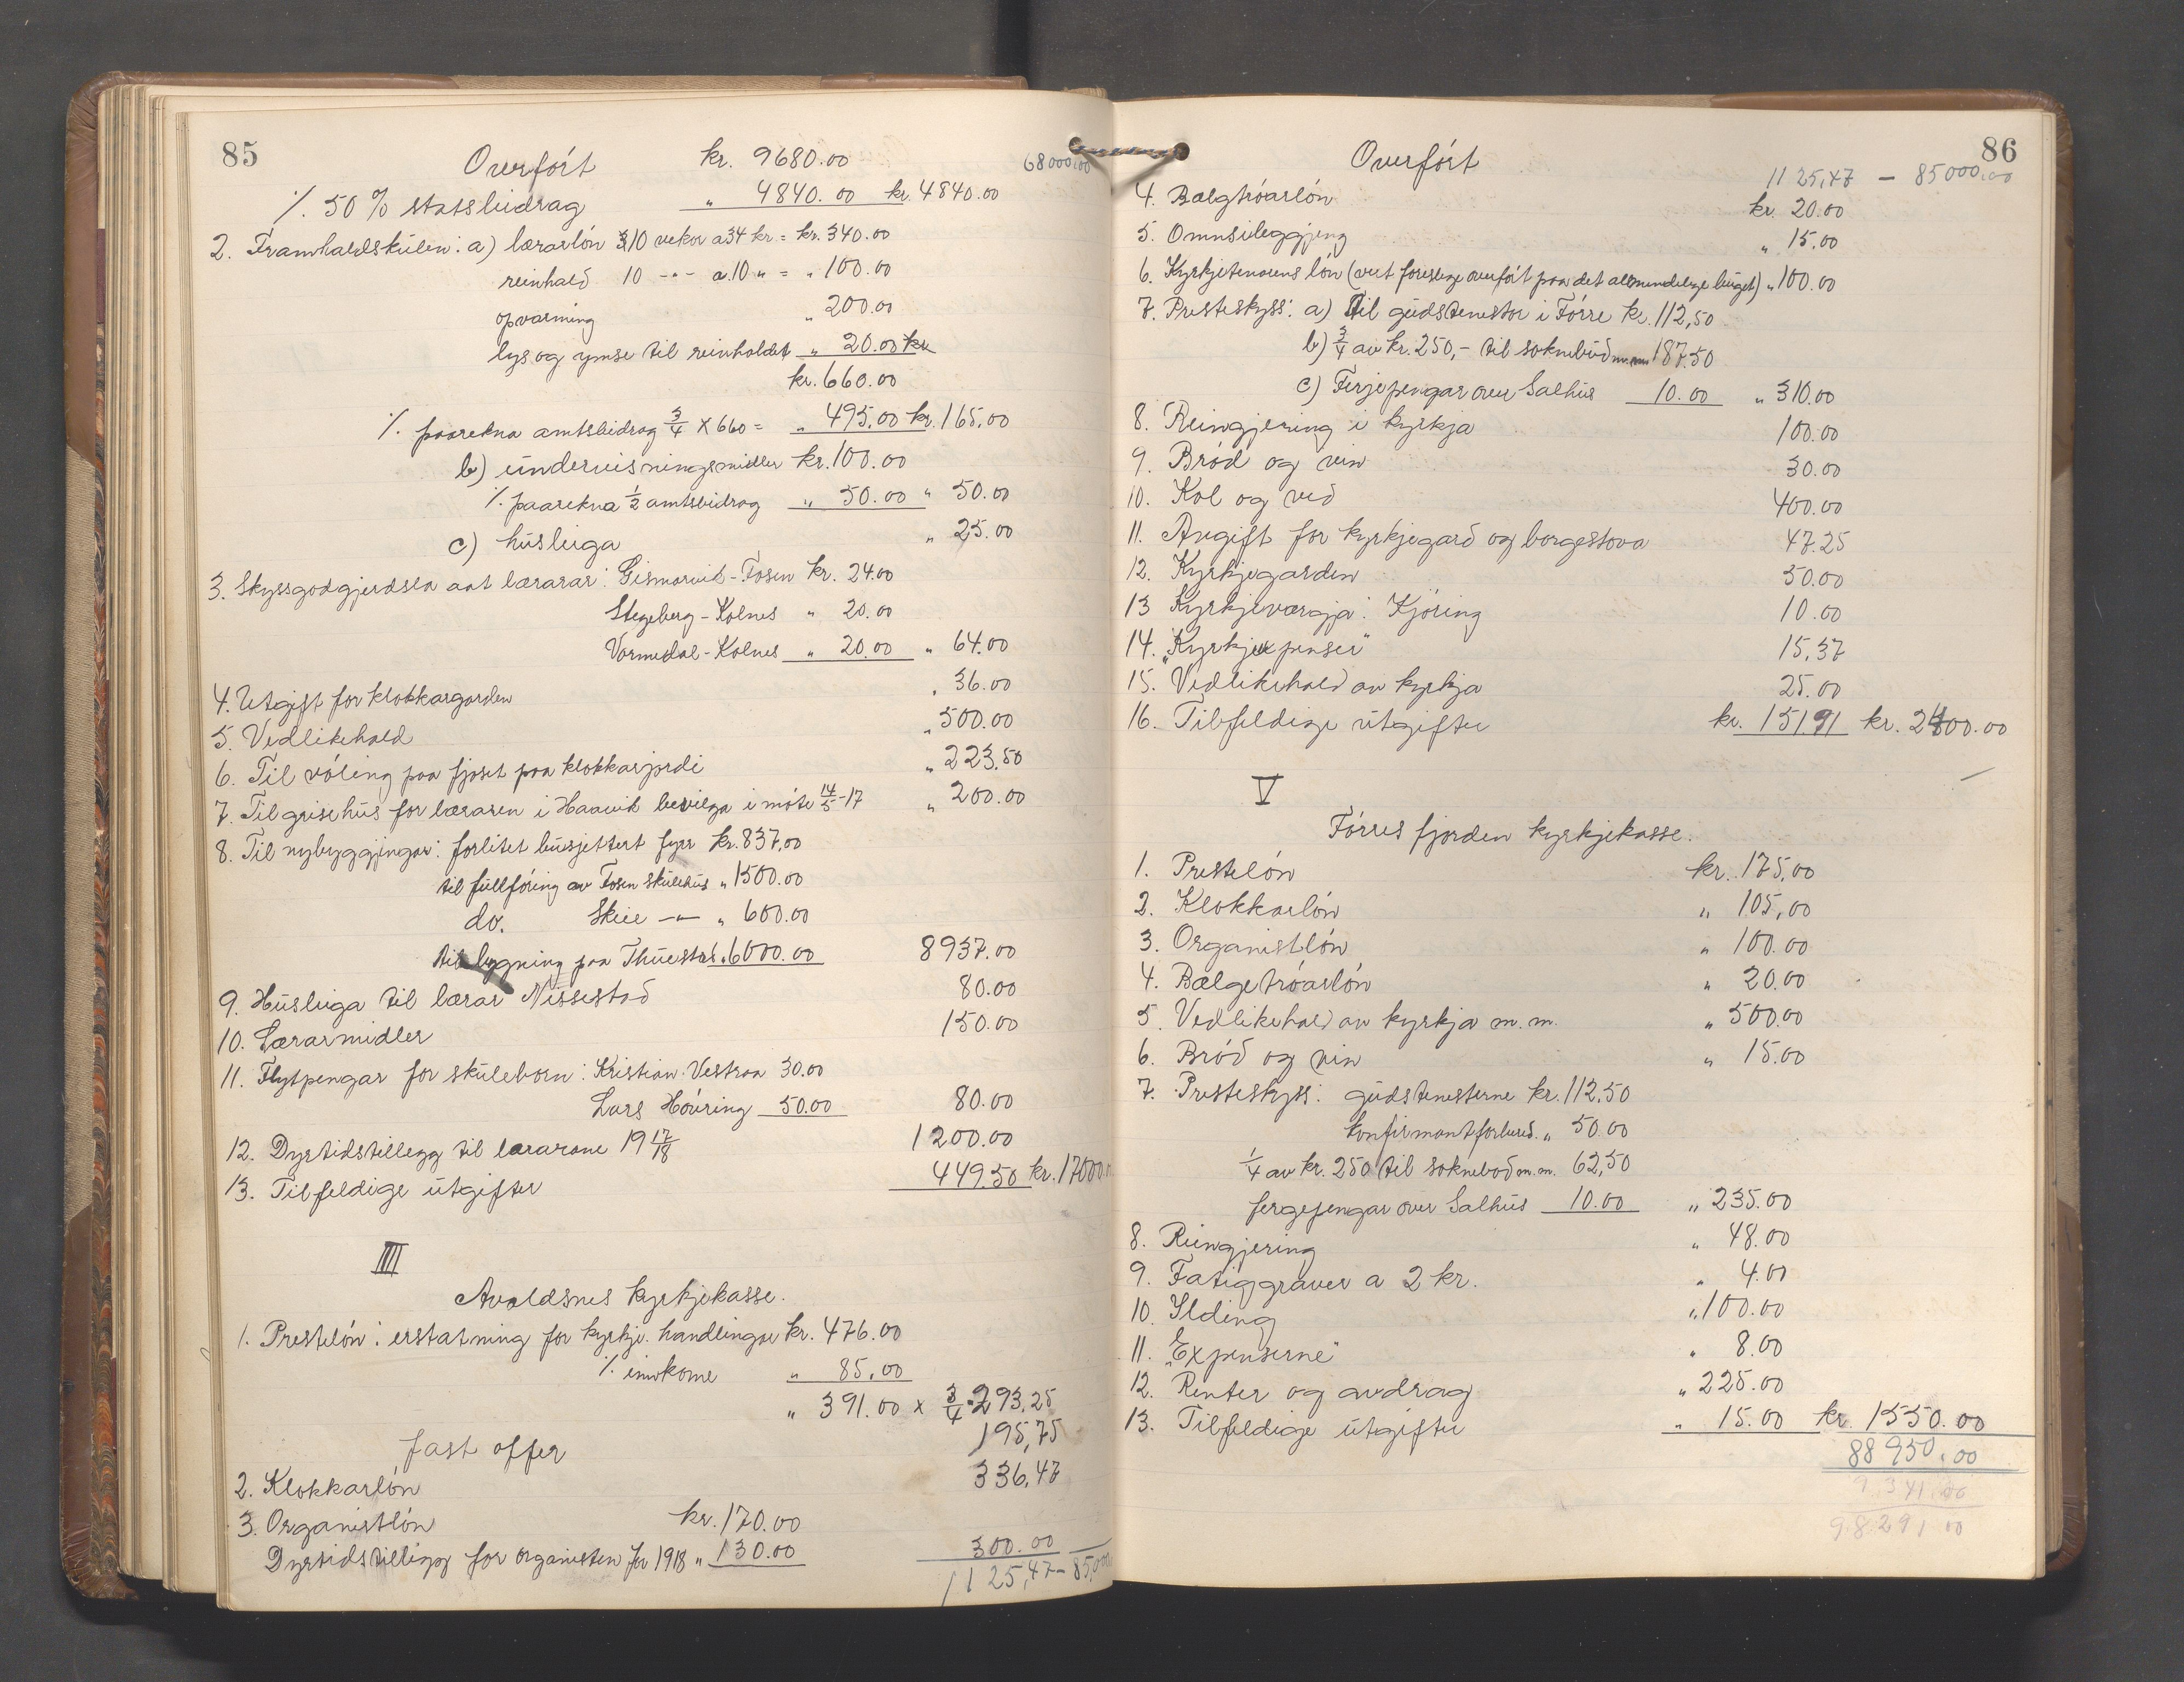 85
Overført kr. 9680.00 68000,00
⁒ 50 % statsbidrag " 4840.00 kr. 4840.00
2. Framhaldskulen: a) lærarløn 10 vekor a 34 kr = kr. 340.00
reinhald 10 -"- a 10 " = " 100.00
opvarming " 200.00
lys og ymse til reinholdet " 20.00 kr
kr. 660.00
⁒ paarekna amtsbidrag 3/4 x 660 = " 495.00 kr. 165.00
b) undervisningsmidler kr. 100.00
⁒ paarekna 1/2 amtsbidrag " 50.00 " 50.00
c) husleiga " 25.00
3. Skyssgodgjerdsla aat lærarar: Gismarvik - Fosen kr. 24.00
Stegeberg - Kolnes " 20.00
Vormedal - Kolnes " 20.00 " 64.00
4. Utgift for klokkargarden " 36.00
5. Vedlikehald " 500.00
6. Til vøling paa fjoset paa klokkarjordi " 223.50
7. Til grisehus for læraren i Haavik bevilga i møte 14/5-17 " 200.00
8. Til nybyggjingar: forlitet busjettert fyrr kr. 837,00
til fullføring av Fosen skulehus " 1500.00
do. Skeie -"- " 600.00
til bygning paa Thuestad " 6000.00 8937.00
9. Husleiga til lærar Nissestad 80.00
10. Lærarmidler 150.00
11. Flytpengar for skuleborn: Kristian Vestraa 30.00
Lars Høvring 50.00 80.00
12. Dyrtidstillegg til lærarane 19 17/18 1200.00
13. Tilfeldige utgifter 449.50 kr. 17000.
IIII
Avaldsnes kyrkjekasse.
1. Presteløn: erstatning for kyrkje. handlingar kr. 476.00
⁒ innkome " 85.00
" 391.00 x 3/4 = 293,25
fast offer 195,75
2. Klokkarløn 336,47
3. Organistløn kr. 170.00
Dyrtidstillegg for organisten for 1918 " 130.00 300.00
1125,47 - 85,000
86
Overført 1125,47 - 85000,00
4. Bælgtrøarløn kr. 20.00
5. Omnsileggjing " 15.00
6. Kyrkjetenarens løn (vert foreslege overført paa det allmindelege buget) " 100.00
7. Presteskyss: a) Til gudstenestor i Førre kr. 112,50
b) 3/4 av kr. 250,- til soknebud m.m. 187.50
c) Ferjepengar over Salhus 10.00 " 310.00
8. Reingjering i kyrkja 100.00
9. Brød og vin 30.00
10. Kol og ved 400.00
11. Avgift for kyrkjegard og borgestova 47.25
12. Kyrkjegarden 50.00
13 Kyrkjeværgja: Kjøring 10.00
14. "Kyrkjeexpenser" 15,37
15. Vedlikehald av kyrkja 25.00
16. Tilfeldige utgifter kr. 151.91 kr. 2400.00
V
Førresfjorden kyrkjekasse.
1. Presteløn kr. 175,00
2. Klokkarløn " 105,00
3. Organistløn " 100.00
4. Bælgetrøarløn " 20.00
5. Vedlikehald av kyrkja m.m. " 500.00
6. Brød og vin " 15.00
7. Presteskyss: gudstenesterne kr. 112,50
konfirmantforbured. " 50.00
1/4 av kr. 250 til soknebod m.m. 62,50
fergepengar over Salhus 10.00 " 235.00
8. Reingjering " 48.00
9. Fatiggraver a 2 kr. " 4.00
10. Ilding " 100.00
11. "Expenserne" " 8.00
12. Renter og avdrag " 225.00
13. Tilfeldige utgifter " 15.00 kr. 1550.00
88950,00
9 341.00
98291 00